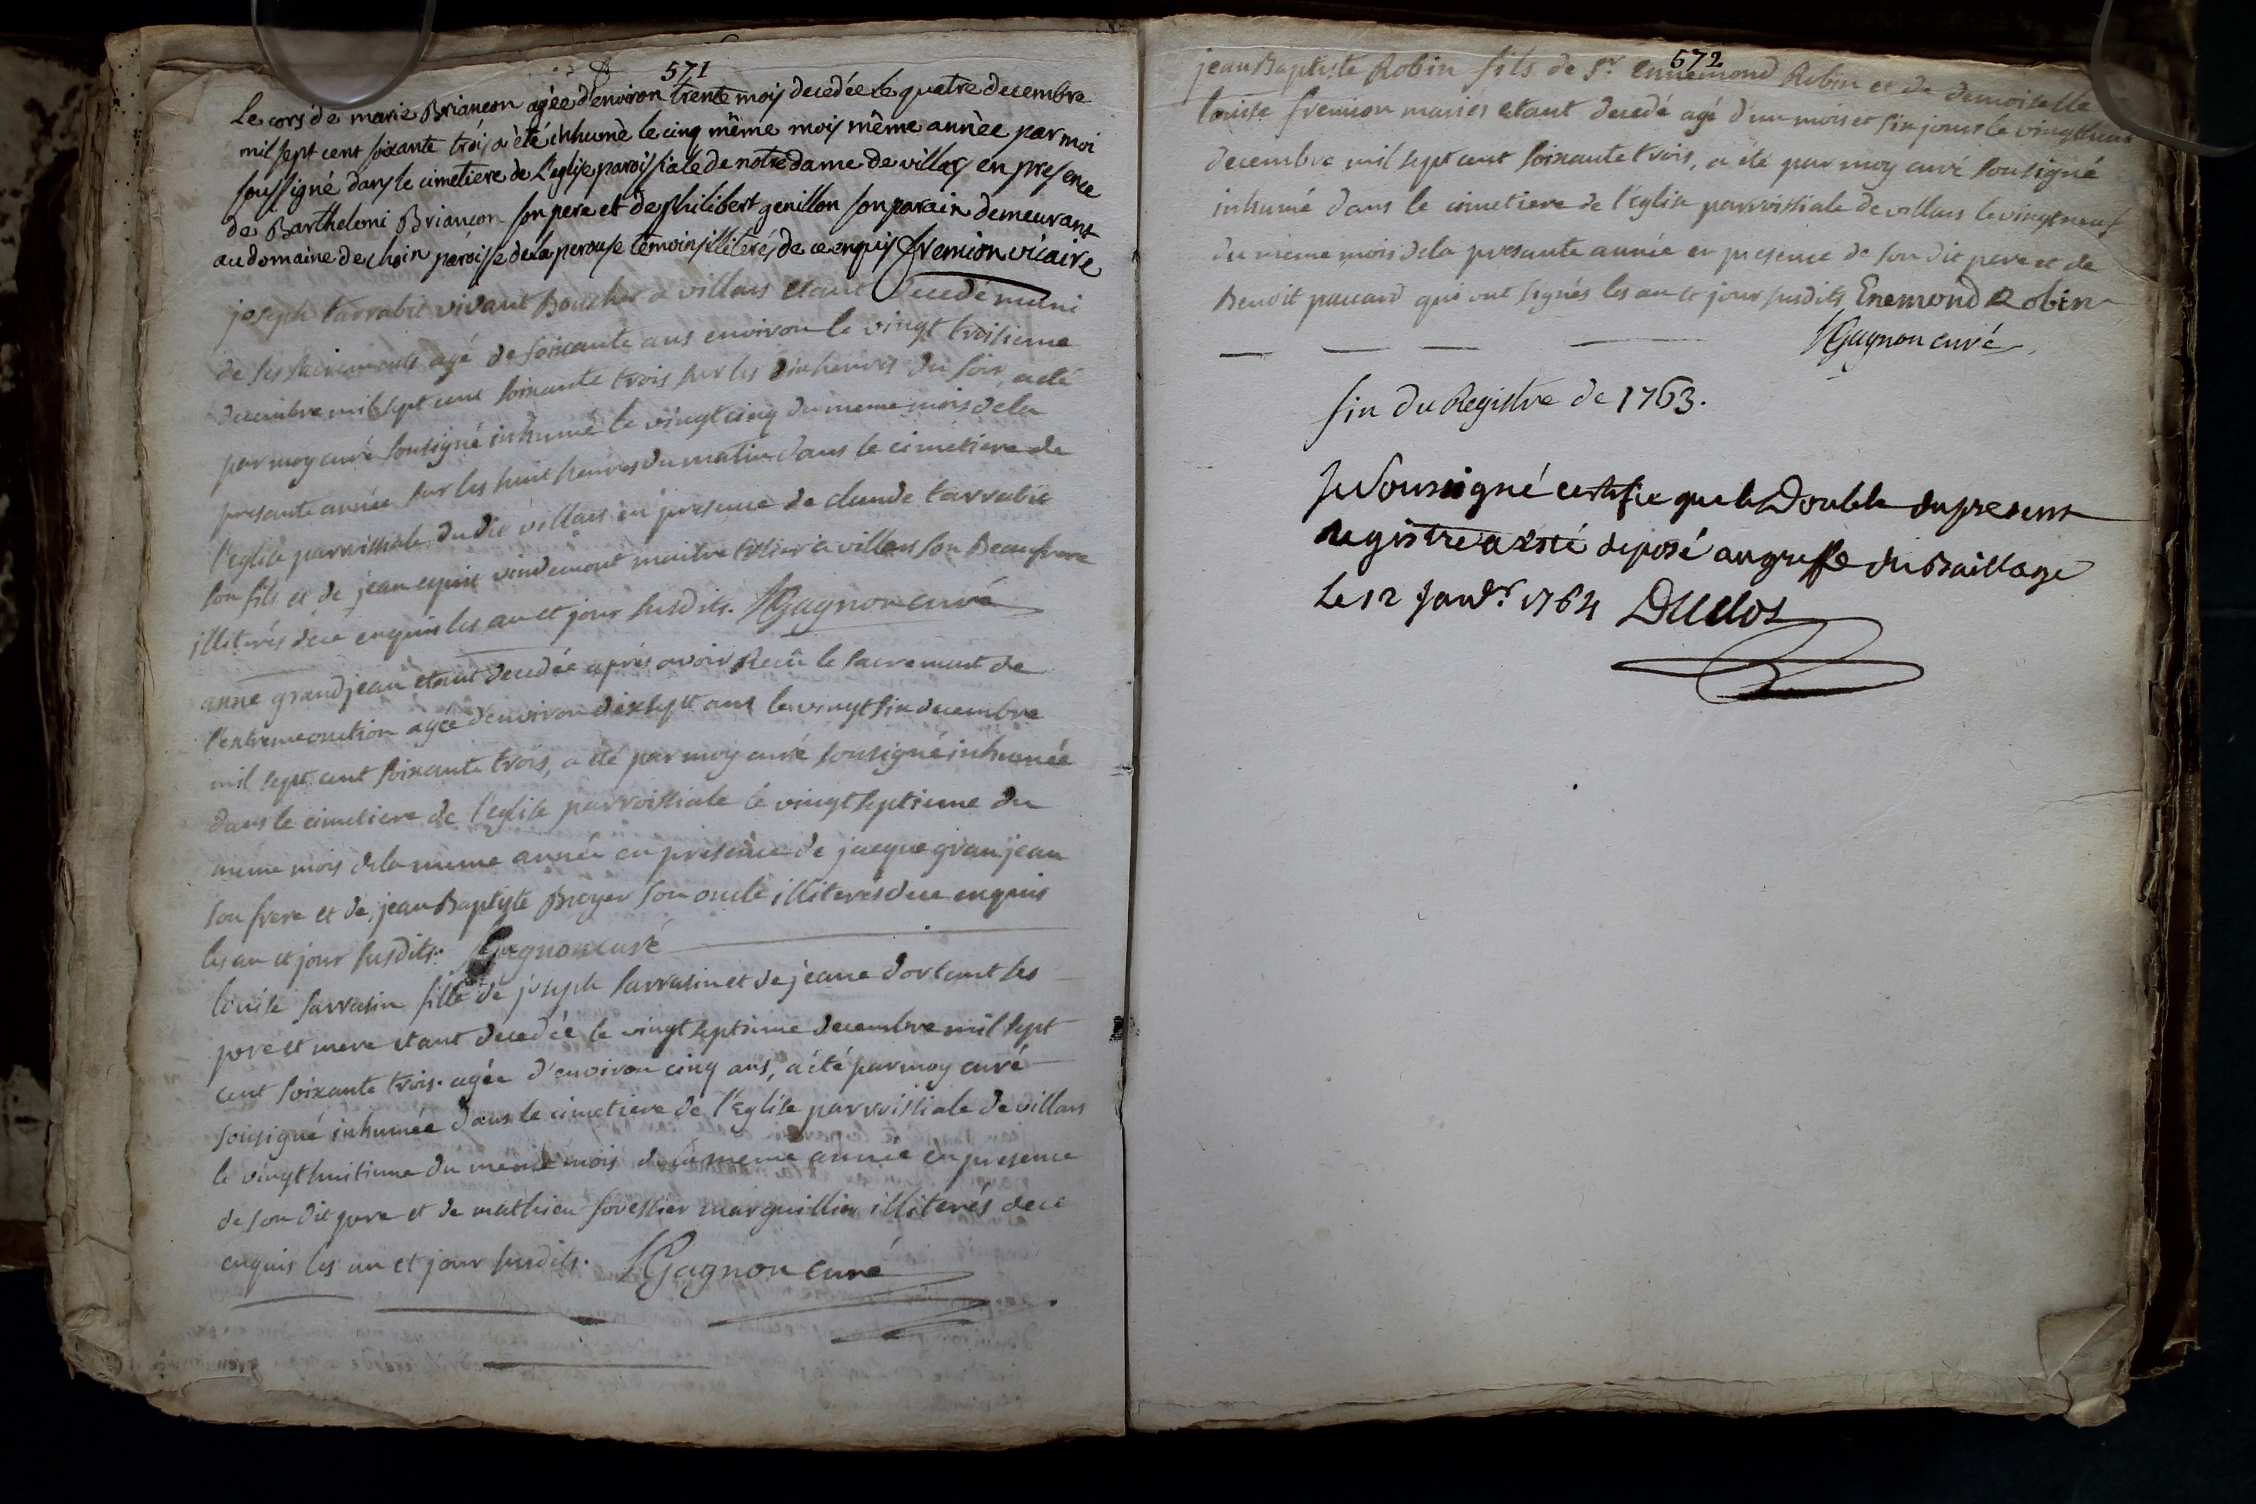 571
Le cors de marie Briancon agée d'environ trente mois decedée le quatre decembre
mil sept cent soixante trois a été inhumé le cinq même mois même année par moi
soussigné dans le cimetiere de l'eglise paroissiale de notre dame de villars en presence
de Barthelemi Briancon son pere et de philibert genillon son parain demeurant
au domaine de choin paroisse de la perouse temoins illiterés de ce enquis fremion vicaire
joseph tarrabit vivant Boucher a villars etant decedé muni
de ses sacrements agé de soixante ans environ le vingt troisieme
decembre mil sept cent soixante trois sur les dix heures du soir, a été
par moy curé sousigné inhumé le vingt cinq du meme mois de la
presante année sur les huit heures du matin dans le cimetiere de
l'eglise parroissiale du dit villars en presence de claude tarrabit
son fils et de jean maitre a villars son Beaufrere
illiterés dece enquis les an et jour susdits. Gagnon curé
anne grandjean etant decedée après avoir Recû le sacrement de
l'extremeonction agée d'environ dixsept ans le vingt six decembre
mil sept cent soixante trois, a été par moy curé sousigné inhumée
dans le cimetiere de l'eglise parroissiale le vingt septieme du
meme mois de la meme année en presence de jacque granjean
son frere et de jean Baptiste Broyer son oncle illiterés dece enquis
les an et jour susdits. Gagnon curé
louise sarrasin fille de joseph sarrasin et de jeane dortant ses
pere et mere etant decedée le vingt septieme decembre mil sept
cent soixante trois. agée d'environ cinq ans, a été par moy curé
sousigné inhumée dans le cimetiere de l'eglise parroissiale de villars
le vingt huitieme du meme mois de la meme année en presence
de son dit pere et de mathieu forestier marguillier illiterés dece
enquis les an et jour susdits. Gagnon curé
572
jean Baptiste Robin fils de Sr. Ennemond Robin et de demoiselle
louise fremion mariés etant decedé agé d'un mois et six jours le vingthuit
decembre mil sept cent soixante trois, a été par moy curé sousigné
inhumé dans le cimetiere de l'eglise parroissiale de villars le vingt neuf
du meme mois de la presante année en presence de son dit pere et de
Benoit paccard qui ont signés les an et jour susdits Enemond Robin
Gagnon curé
fin du Registre de 1763.
Je Soussigné certifie que le Double du present
registre a esté deposé au greffe du Baillage
Le 12 Janvr. 1764 Duclos